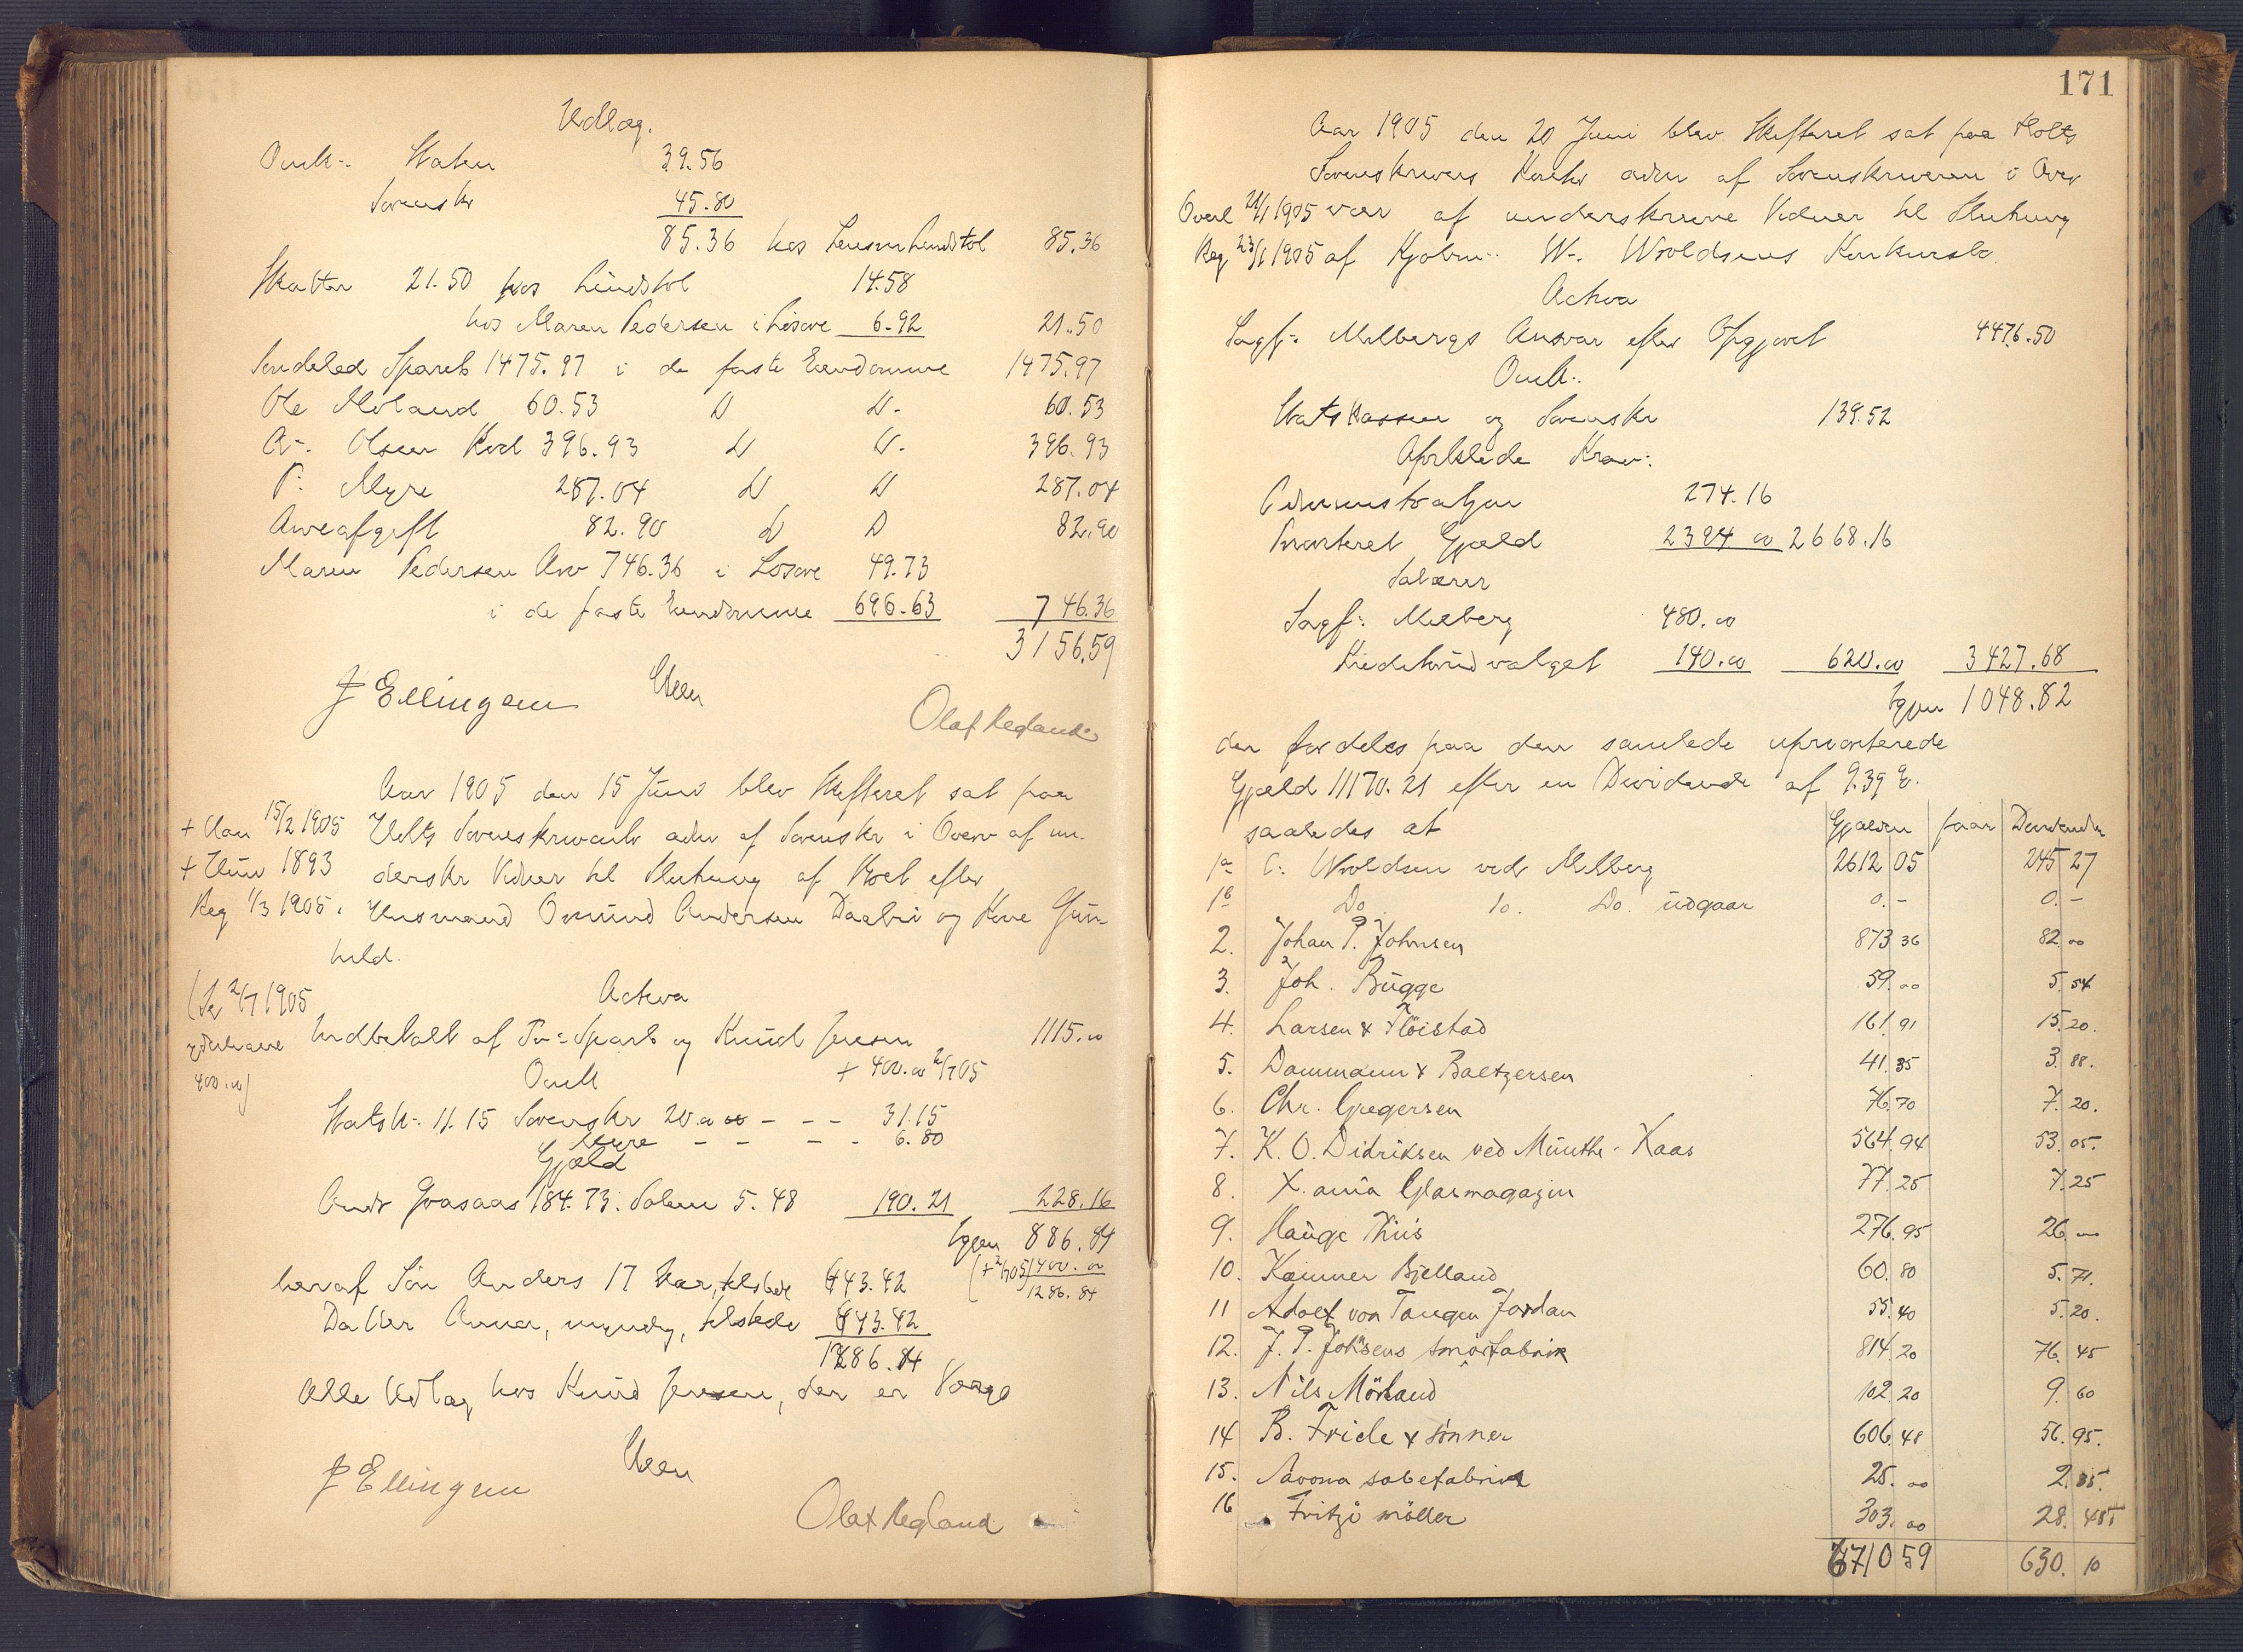 Udlæg.
Omk: Staten 39.56
Sorenskr 45.80
85.36 hos Lensm Lindstøl 85.36
Skatter 21.50 hos Lindstøl 14.58
hos Maren Pedersen i Løsøre 6.92 21.50
Søndeled Spareb 1475.97 i de faste Eiendomme 1475.97
Ole Moland 60.53 D D. 60.53
A. Olsen Kvel 396.93 D D. 396.93
P: Myre 287.04 D D 287.04
Arveafgift 82.90 D D 82.90
Maren Pedersen Arv 746.36 i Løsøre 49.73
i de faste Eiendomme 696.63 746.36
3156.59
J Ellingsen Olaf Hegland
Aar 1905 den 15 Juni blev Skifteret sat paa
+ Man 15/2 1905 Holts Sorenskrivarktr adm af Sorenskr i Overv af un-
+ Hun 1893 derskr Vidner til Slutning af Boet efter
Reg 1/3 1905. Husmand Omund Andersen Daalvi og Kone Gun-
hild.
(Se 2/7 1905 Activa
yderligere Indbetalt af Spareb og Knud Jensen 1115.00
400.00) Omk + 400.00 2/7 05
Statsk: 11.15 Sorenskr 20.00 - - - 31.15
Myre - - - - 6.80
Gjæld
Andr Graasaas 184.73. Salær 5.48 190.21 228.16
Igjen 886.84
heraf Søn Anders 17 Aar, tilstede 643.42 (+ 2/7 05) 400.00
1286.84
Datter Anna, myndig, tilstede 643.42
1286.84
Alle Udlæg hos Knud Jensen, der er Værge
J Ellingsen Olaf Hegland
171
Aar 1905 den 20 Juni blev Skifteret sat paa Holts
Sorenskrivers Kontor adm af Sorenskriveren i Over
Overl 21/1 1905 vær af underskrevne Vidner til Slutning
Reg 23/1 1905 af Kjøbm: W. Woldsens Konkursbo.
Activa
Sagf: Milbergs Ansvar efter Opgjøret 4476.50
Omk:
Statskassen og Sorenskr 139.52
Privilegerede Krav:
Administration 274.16
Prioriteret Gjæld 2394 00 2668.16
Salærer
Sagf: Milberg 480.00
Kreditorudvalget 140.00 620.00 3427.68
Igjen 1048.82
der fordeles paa den samlede uprioriterede
Gjæld 11170.21 efter en Dividende af 9.39 %.
saaledes at Gjælden faar Dividenden
1a C. Woldsen ved Milberg 2612 05 245 27
1b Do Do. Do. udgaar 0. - 0. -
2. Johan P. Johnsen 873 36 82 00
3. Joh. Bugge 59. 00 5. 54
4. Larsen & Fløistad 161. 91 15. 20.
5. Dammann & Baetzersen 41. 35 3. 88.
6. Chr. Gregersen 76. 70 7. 20.
7. K. O. Didriksen ved Munthe-Kaas 564. 94 53. 05.
8. X.ania Glasmagazin 77. 25 7. 25
9. Hauge Thiis 276. 95 26. 00
10. Kæmner Bjelland 60. 80 5. 71.
11 Adolf von Tangen Jordan 55. 40 5. 20.
12. J. P. Johnsens smørfabrik 814. 20 76. 45
13. Nils Mørland 102. 20 9. 60
14 B. Friele & Sønner 606. 48 56. 95.
15. Savona sæbefabrik 25. 00 2. 35.
16 Fritzø møller 303. 00 28. 45
6710 59 630. 10